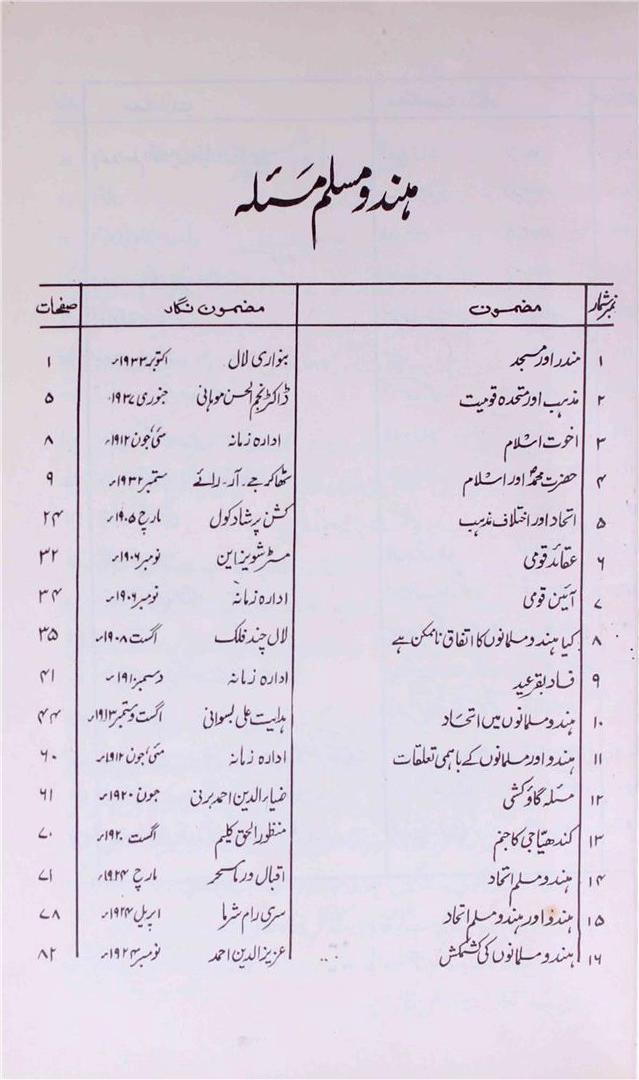 ہندو مسلم مسئلہ
نمبر شمار مضمون مضمون نگار صفحات
۱ مندر اور مسجد بنواری لال اکتوبر ۱۹۳۳ء ۱
۲ مذہب اور متحدہ قومیت ڈاکٹر نجم الحسن موہانی جنوری ۱۹۳۷ء ۵
۳ اخوت اسلام ادارہ زمانہ مئی، جون ۱۹۱۲ء ۸
۴ حضرت محمدؐ اور اسلام ٹھاکر جے۔ آر۔ رائے ستمبر ۱۹۳۲ء ۹
۵ اتحاد اور اختلاف مذہب کشن پرشاد کول مارچ ۱۹۰۵ء ۲۴
۶ عقائد قومی مسٹر شویز این نومبر ۱۹۰۶ء ۳۲
۷ آئین قومی ادارہ زمانہ نومبر ۱۹۰۶ء ۳۴
۸ کیا ہندو مسلمانوں کا اتفاق ناممکن ہے لال چند فلک اگست ۱۹۰۸ء ۳۵
۹ فساد بقرعید ادارہ زمانہ دسمبر ۱۹۱۰ء ۴۱
۱۰ ہندو مسلمانوں میں اتحاد ہدایت علی بسوانی اگست و ستمبر ۱۹۱۳ء ۴۴
۱۱ ہندو اور مسلمانوں کے باہمی تعلقات ادارہ زمانہ مئی، جون ۱۹۱۲ء ۶۰
۱۲ مسئلہ گاؤکشی ضیاء الدین احمد برنی جون ۱۹۲۰ء ۶۱
۱۳ کندھیا جی کا جنم منظور الحق کلیم اگست ۱۹۲۰ء ۷۰
۱۴ ہندو مسلم اتحاد اقبال ورما سحر مارچ ۱۹۲۴ء ۷۱
۱۵ ہندو اور ہندو مسلم اتحاد سری رام شرما اپریل ۱۹۲۴ء ۷۸
۱۶ ہندو مسلمانوں کی کشمکش عزیز الدین احمد نومبر ۱۹۲۴ء ۸۲